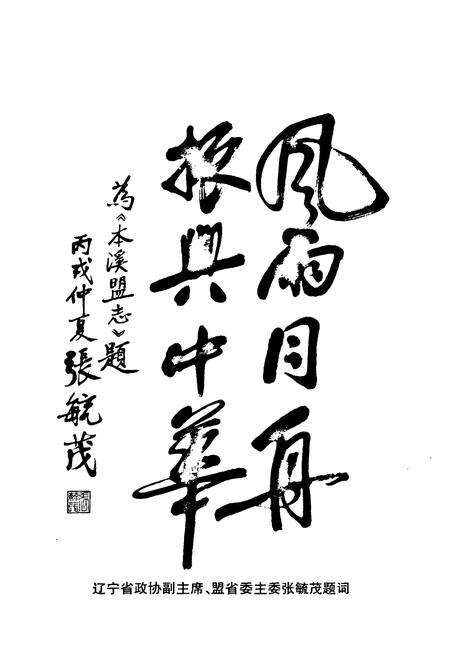 風雨同舟
振興中華
為《本溪盟志》題
丙戌仲夏張毓茂
辽宁省政协副主席、盟省委主委张毓茂题词